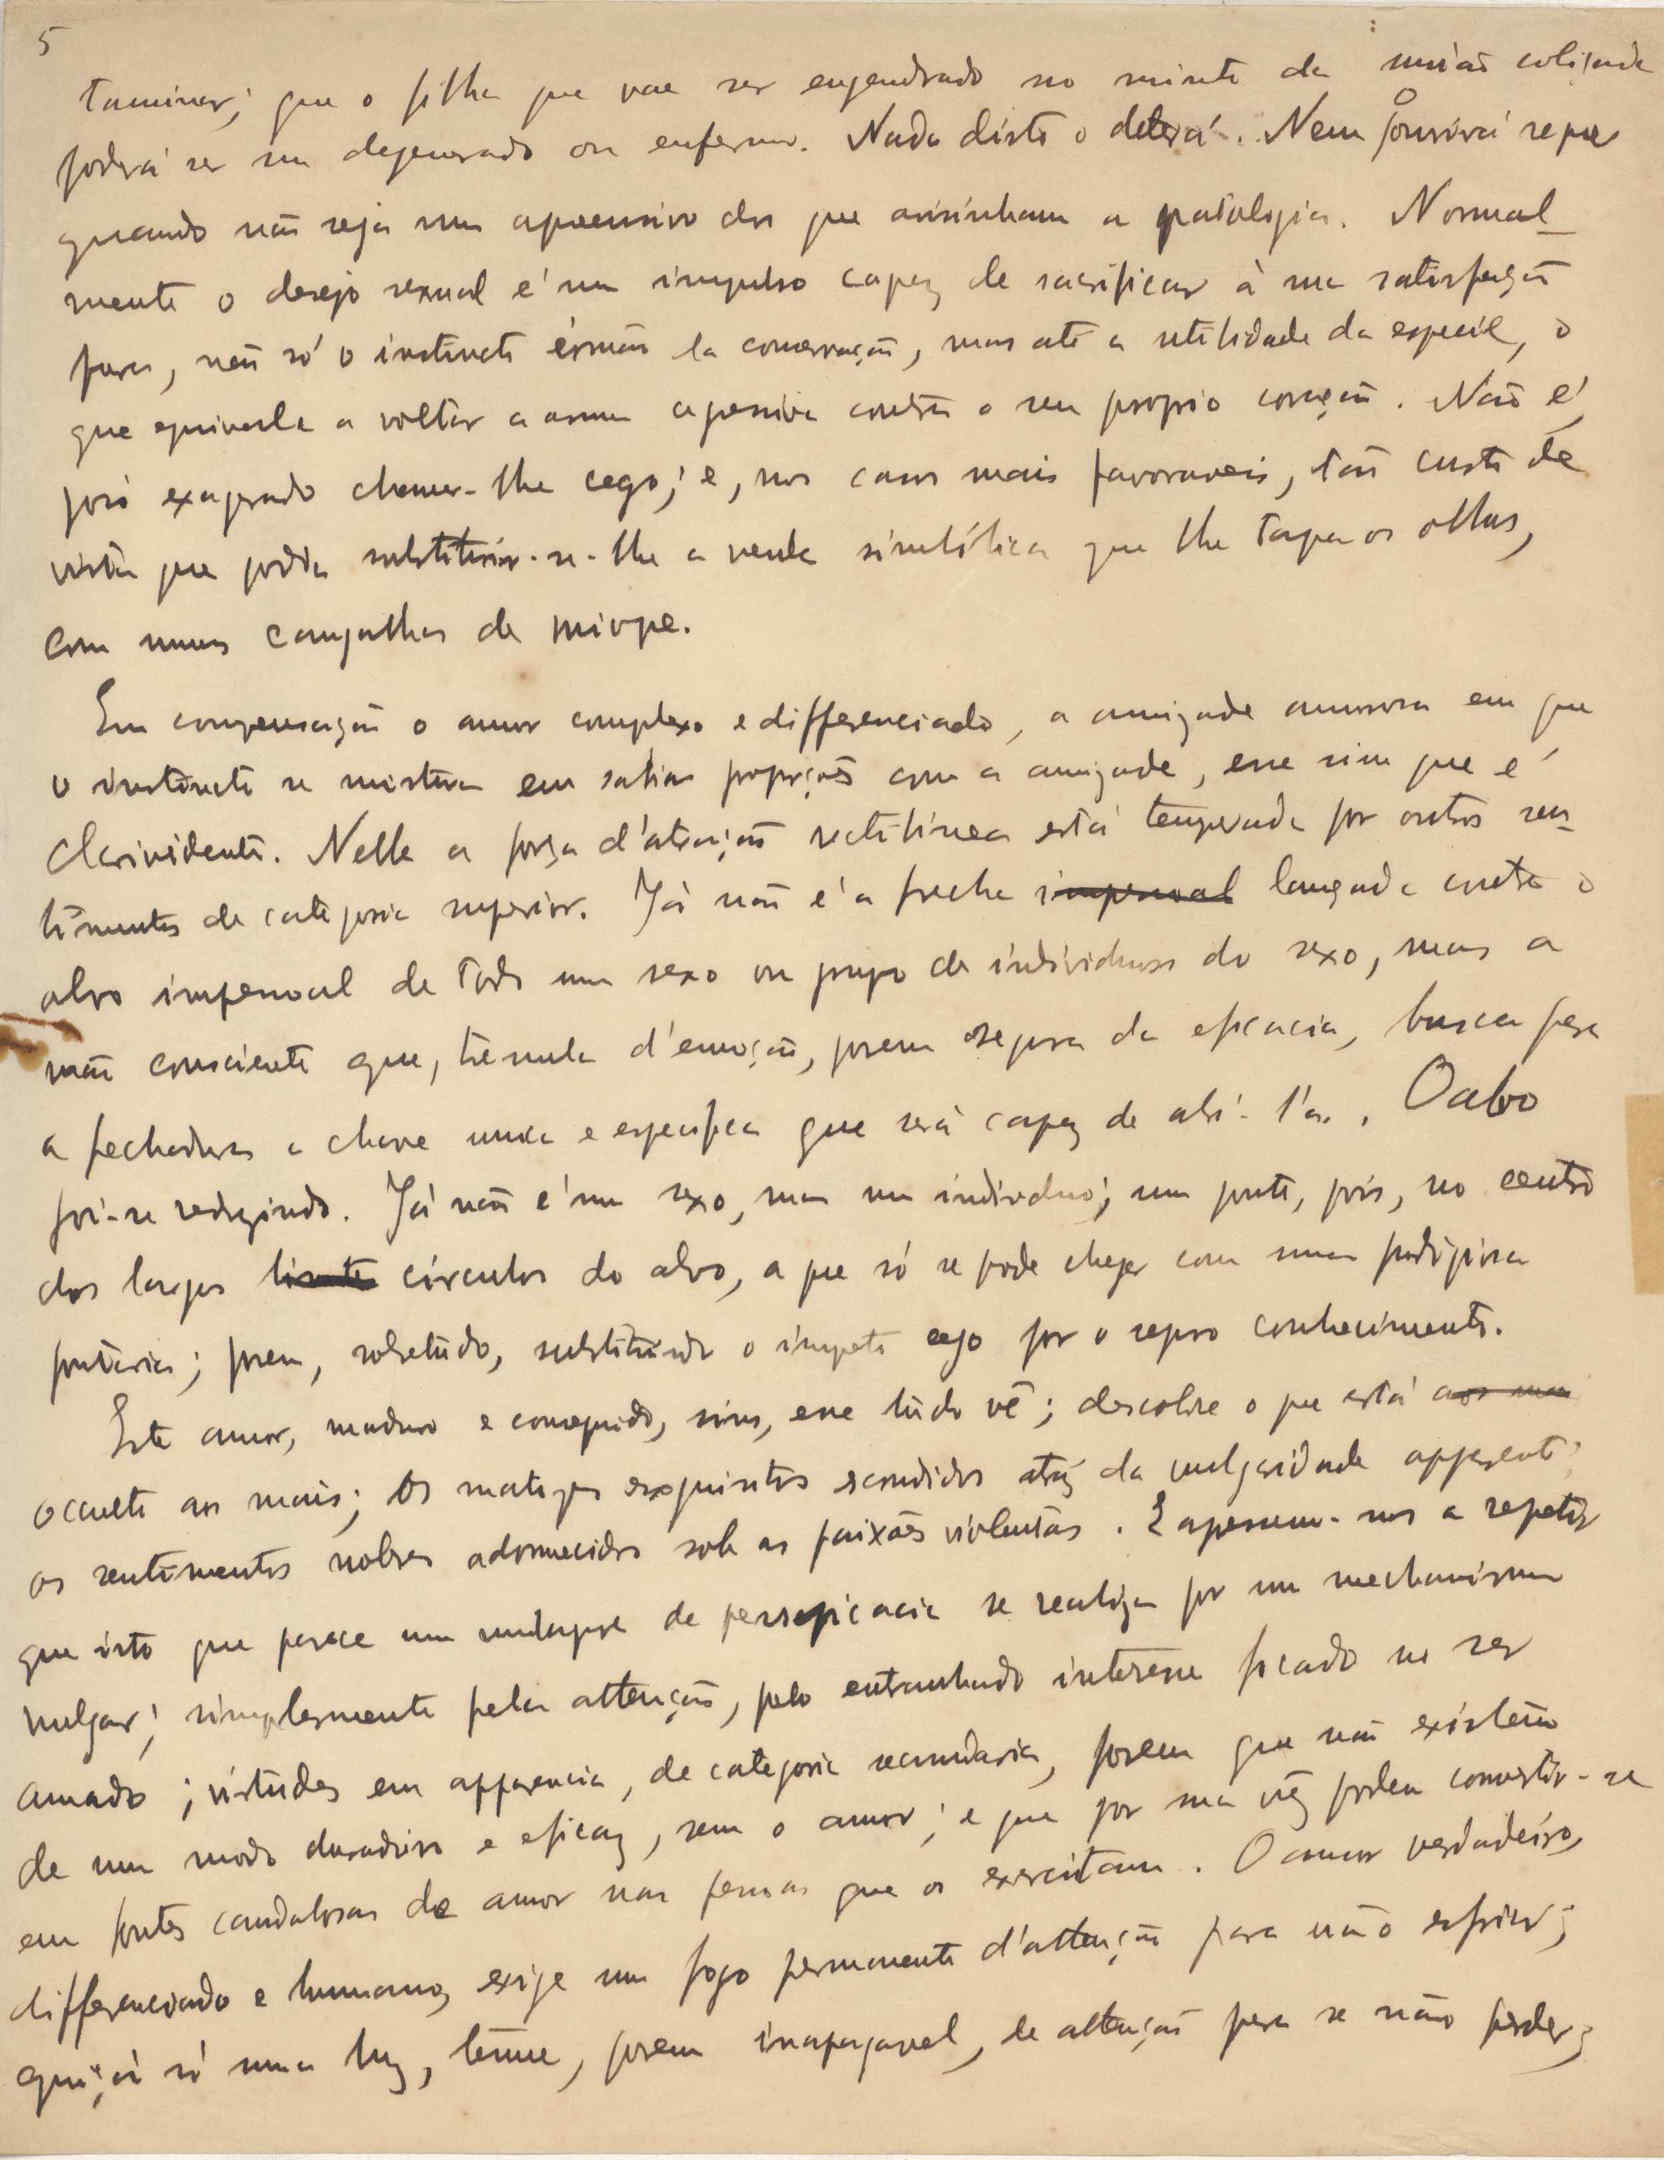 5
taminar; que o filho que vae ser engendrado no minuto da união cobiçada
poderá ser um degenerado ou enfermo. Nada disto o deterá. Nem o ouvirá sequer
quando não seja um apreensivo dos que avisinham a patologia. Normal-
mente o desejo sexual é um impulso capaz de sacrificar à sua satisfação
pura, não só o instincto érmão da conservação, mas até a utilidade da especie, o
que equivale a voltar a arma agressiva contra o seu proprio coração. Não é,
pois exagerado chamar-lhe cego; e, nos casos mais favoraveis, tão curto de
vista que podia substituir-se-lhe a venda simbólica que lhe tapa os olhos,
com umas cangalhas de miope.
Em compensação o amor complexo e differenciado, a amizade amorosa em que
o instincto se mistura em sabias proporções com a amizade, esse sim que é
clarividente. Nelle a força d'atração rectilinea está temperada por outros sen-
timentos de categoria superior. Já não é a frecha impessoal lançada contra o
alvo impessoal de todo um sexo ou grupo de individuos do sexo, mas a
mão consciente que, trémula d'emoção, porem segura da eficacia, busca para
a fechadura a chave unica e especifica que será capaz de abri-l'a. O alvo
foi-se reduzindo. Já não é um sexo, mas um individuo; um ponto, pois, no centro
dos largos circulos do alvo, a que só se pode chegar com uma prodigiosa
pontaria; porem, sobretudo, substituindo o impeto cego por o seguro conhecimento.
Este amor, maduro e conseguido, sim, esse tudo vê; descobre o que está aos mai
occulto aos mais; os matizes exquisitos escondidos atraz da vulgaridade apparente;
os sentimentos nobres adormecidos sob as paixões violentas. E apressem-nos a repetir
que isto que parece um milagre de perspicacia se realiza por um mechanismo
vulgar; simplesmente pela attenção, pelo entranhado interesse focado no ser
amado; virtudes em apparencia, de categoria secundaria, porem que não existem
de um modo duradoiro e eficaz, sem o amor; e que por sua vez podem convertir-se
em fontes caudalosas de amor nas pessoas que os exercitam. O amor verdadeiro,
differenciado e humano, exige um fogo permanente d'attenção para não esfriar;
quiçá só uma luz, ténue, porem inapagavel, de attenção para se não perder;